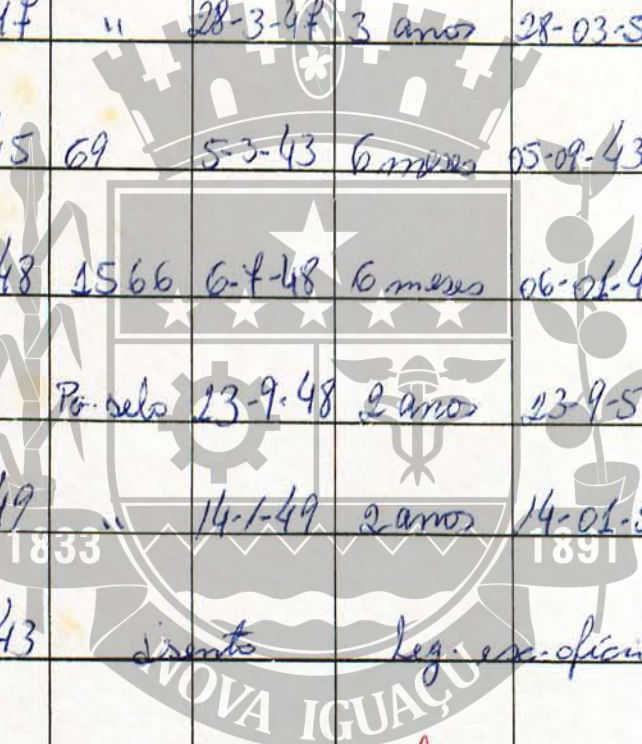 47 " 28-3-47 3 anos 28-03-5
45 69 5-3-43 6 meses 05-09-43
48 1566 6-7-48 6 meses 06-01-4
Pg. selo 23-9-48 2 anos 23-9-5
49 " 14-1-49 2 anos 14-01-5
1833 1891
43 isento Leg. ex-ofício
NOVA IGUAÇU